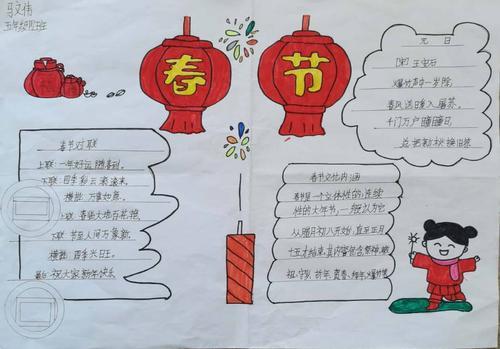 马文倩
五年级四班
福
春节
元日
[宋] 王安石
爆竹声中一岁除
春风送暖入屠苏
千门万户曈曈日
总把新桃换旧符
春节对联
上联:一年好运随春到
下联:四季彩云滚滚来
横批:万事如意
上联:春临大地百花艳
下联:节至人间万象新
横批:四季兴旺
祝大家新年快乐
春节文化内涵
春节是一个立体性的,连续
性的大年节,一般认为它
从腊月初八开始,直至正月
十五才结束,其内容包含祭神,祭
祖,守队,拜年,贺春,